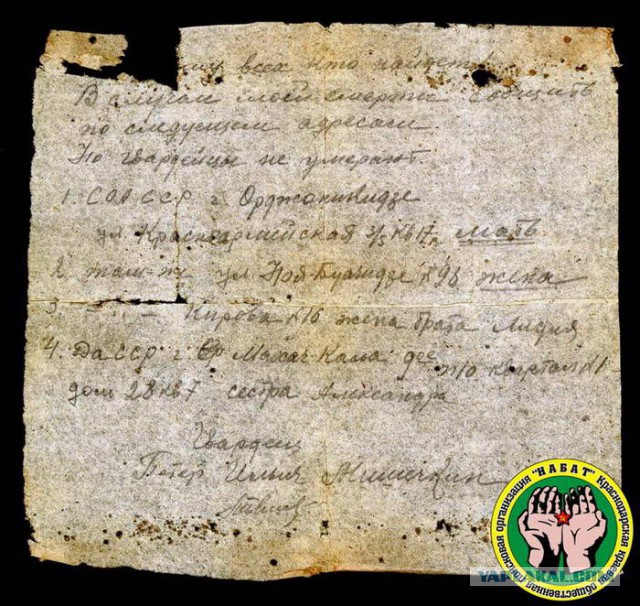 всех кто найдет!
В случаи моей смерти сообщить
по следующем адресам.
Но гвардейцы не умерают.
1. СОА ССР г. Орджоникидзе
ул Красноармейская 3/5 кв 17, мать
2. ул Ной-Буачидзе №9б жена
3. Кирова №16 жена брата Лидия
4. Да ССР г. Махач-Кала
квартал №1
дом 28 кв 7 сестра Александра
Гвардеец
Петер Илья Мишичкин
"НАБАТ" Краснодарская краевая общественная поисковая организация
YAPLAKAL.COM